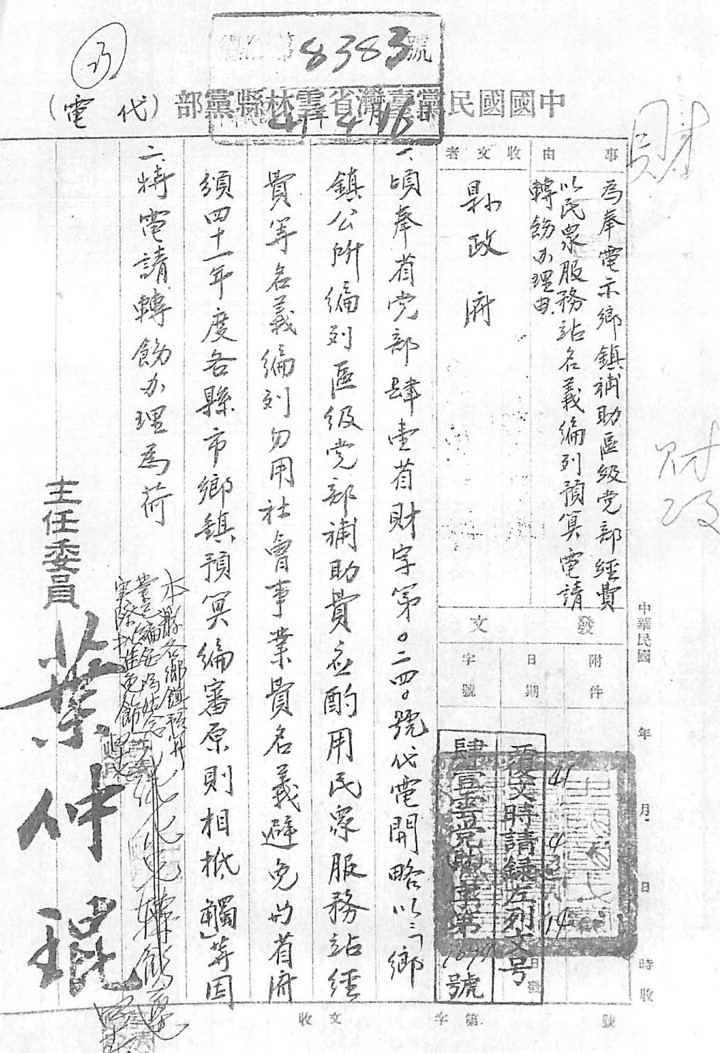 8383號
41 4 16
中國國民黨臺灣省雲林縣黨部（代電）
財
事由
為奉電示鄉鎮補助區級党部經費
以民眾服務站名義編列預算電請
轉飭办理由
收文者
縣政府
發文
附件
日期
字號
復文時請錄左列文号
41 4 14
號
一、頃奉省党部肆壹省財字第0二四0號代電開略以「鄉
鎮公所編列區級党部補助費应酌用民眾服務站經
費等名義編列勿用社會事業費名義避免与省府
頒四十一年度各縣市鄉鎮預算編審原則相抵觸」等因
二、特電請轉飭办理為荷
主任委員 葉仲琨
本縣各鄉鎮預算
中華民國 年 月 日 時收
收文 字第 號